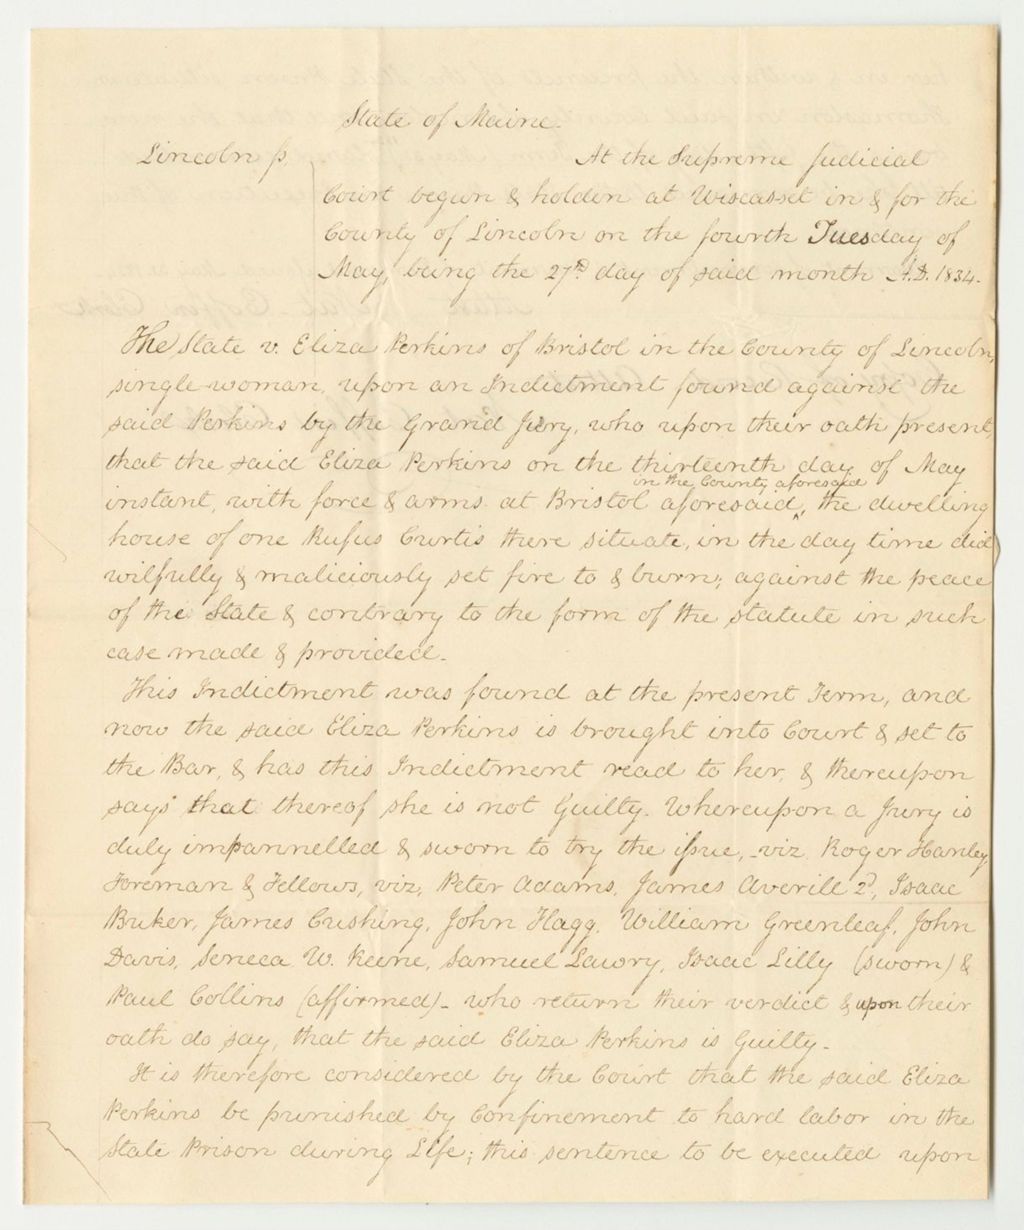 State of Maine.
Lincoln ss. At the Supreme Judicial
Court begun & holden at Wiscasset in & for the
County of Lincoln on the fourth Tuesday of
May, being the 27th day of said month A.D. 1834.
The State v. Eliza Perkins of Bristol in the County of Lincoln,
single woman, upon an Indictment found against the
said Perkins by the Grand Jury, who upon their oath present,
that the said Eliza Perkins on the thirteenth day of May
in the County aforesaid
instant, with force & arms at Bristol aforesaid, the dwelling
house of one Rufus Curtis there situate, in the day time did
wilfully & maliciously set fire to & burn; against the peace
of the State & contrary to the form of the statute in such
case made & provided.
This Indictment was found at the present Term, and
now the said Eliza Perkins is brought into Court & set to
the Bar, & has this Indictment read to her, & thereupon
says that thereof she is not Guilty. Whereupon a Jury is
duly impannelled & sworn to try the issue, viz. Roger Hanley,
Foreman & Fellows, viz, Peter Adams, James Averill 2d, Isaac
Buker, James Cushing, John Flagg, William Greenleaf, John
Davis, Seneca W. Keene, Samuel Lawry, Isaac Lilly (sworn) &
Paul Collins (affirmed) - who return their verdict & upon their
oath do say, that the said Eliza Perkins is Guilty.
It is therefore considered by the Court that the said Eliza
Perkins be punished by Confinement to hard labor in the
State Prison during Life; this sentence to be executed upon